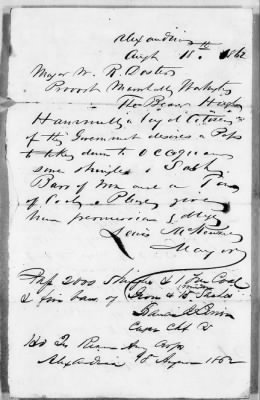 Alexandria
Augt 18th 1862
Major W. R. Doster
Provost Marshall Washington
The Bearer Hugh
a loyal Citizen
of this Government desires a Pass
to take down to Occoquan
some shingles & Sash
Bars of Iron and a Ton
of Coal & Please give
him permission & oblige
Lewis McKenzie
Mayor
Pass 2000 Shingles & 1 Ton Coal
& five bars of Iron 4 Window Sashes
Capn
Hd Qr Army Corps
Alexandria 18 August 1862